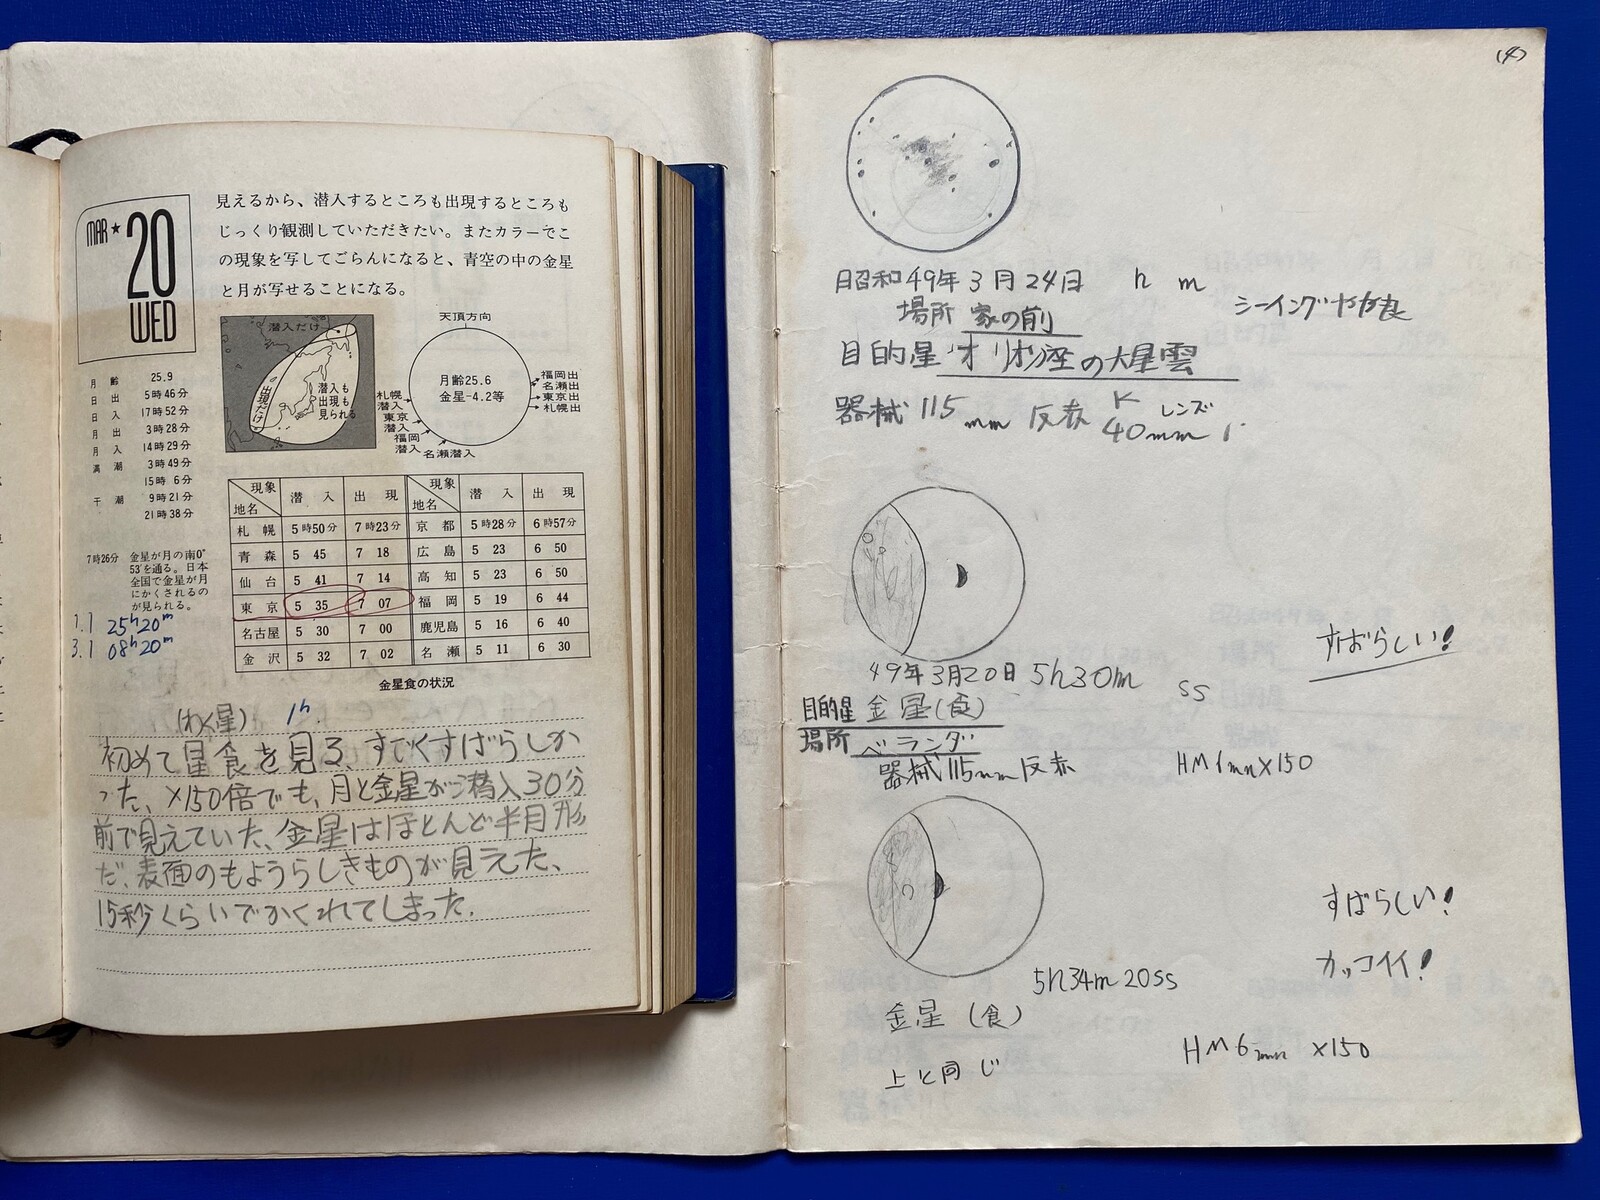 見えるから、潜入するところも出現するところも
じっくり観測していただきたい。またカラーでこ
の現象を写してごらんになると、青空の中の金星
と月が写せることになる。
MAR★
20
WED
月齢 25.9
日出 5時46分
日入 17時52分
月出 3時28分
月入 14時29分
満潮 3時49分
15時 6分
干潮 9時21分
21時38分
7時26分 金星が月の南0°
53′を通る。日本
全国で金星が月
にかくされるの
が見られる。
1.1 25h20m
3.1 08h20m
潜入だけ
出現だけ
潜入も
出現も
見られる
天頂方向
月齢25.6
金星-4.2等
札幌
潜入
東京
潜入
福岡
潜入
名瀬潜入
福岡出
名瀬出
東京出
札幌出
現象 地名 潜入 出現 現象 地名 潜入 出現
札幌 5時50分 7時23分 京都 5時28分 6時57分
青森 5 45 7 18 広島 5 23 6 50
仙台 5 41 7 14 高知 5 23 6 50
東京 5 35 7 07 福岡 5 19 6 44
名古屋 5 30 7 00 鹿児島 5 16 6 40
金沢 5 32 7 02 名瀬 5 11 6 30
金星食の状況
(わく星) 1h.
初めて星食を見る、すごくすばらしか
った、×150倍でも、月と金星が潜入30分
前で見えていた、金星はほとんど半月形
だ、表面のもようらしきものが見えた、
15秒くらいでかくれてしまった.
(4)
昭和49年3月24日 h m
シーイングやや良
場所 家の前
目的星 オリオン座の大星雲
器械 115mm 反赤 K 40mm レンズ
49年3月20日 5h30m SS
すばらしい!
目的星 金星(食)
場所 ベランダ
器械115mm反赤 HM6mm×150
5h34m20SS
すばらしい!
カッコイイ!
金星(食)
HM6mm ×150
上と同じ